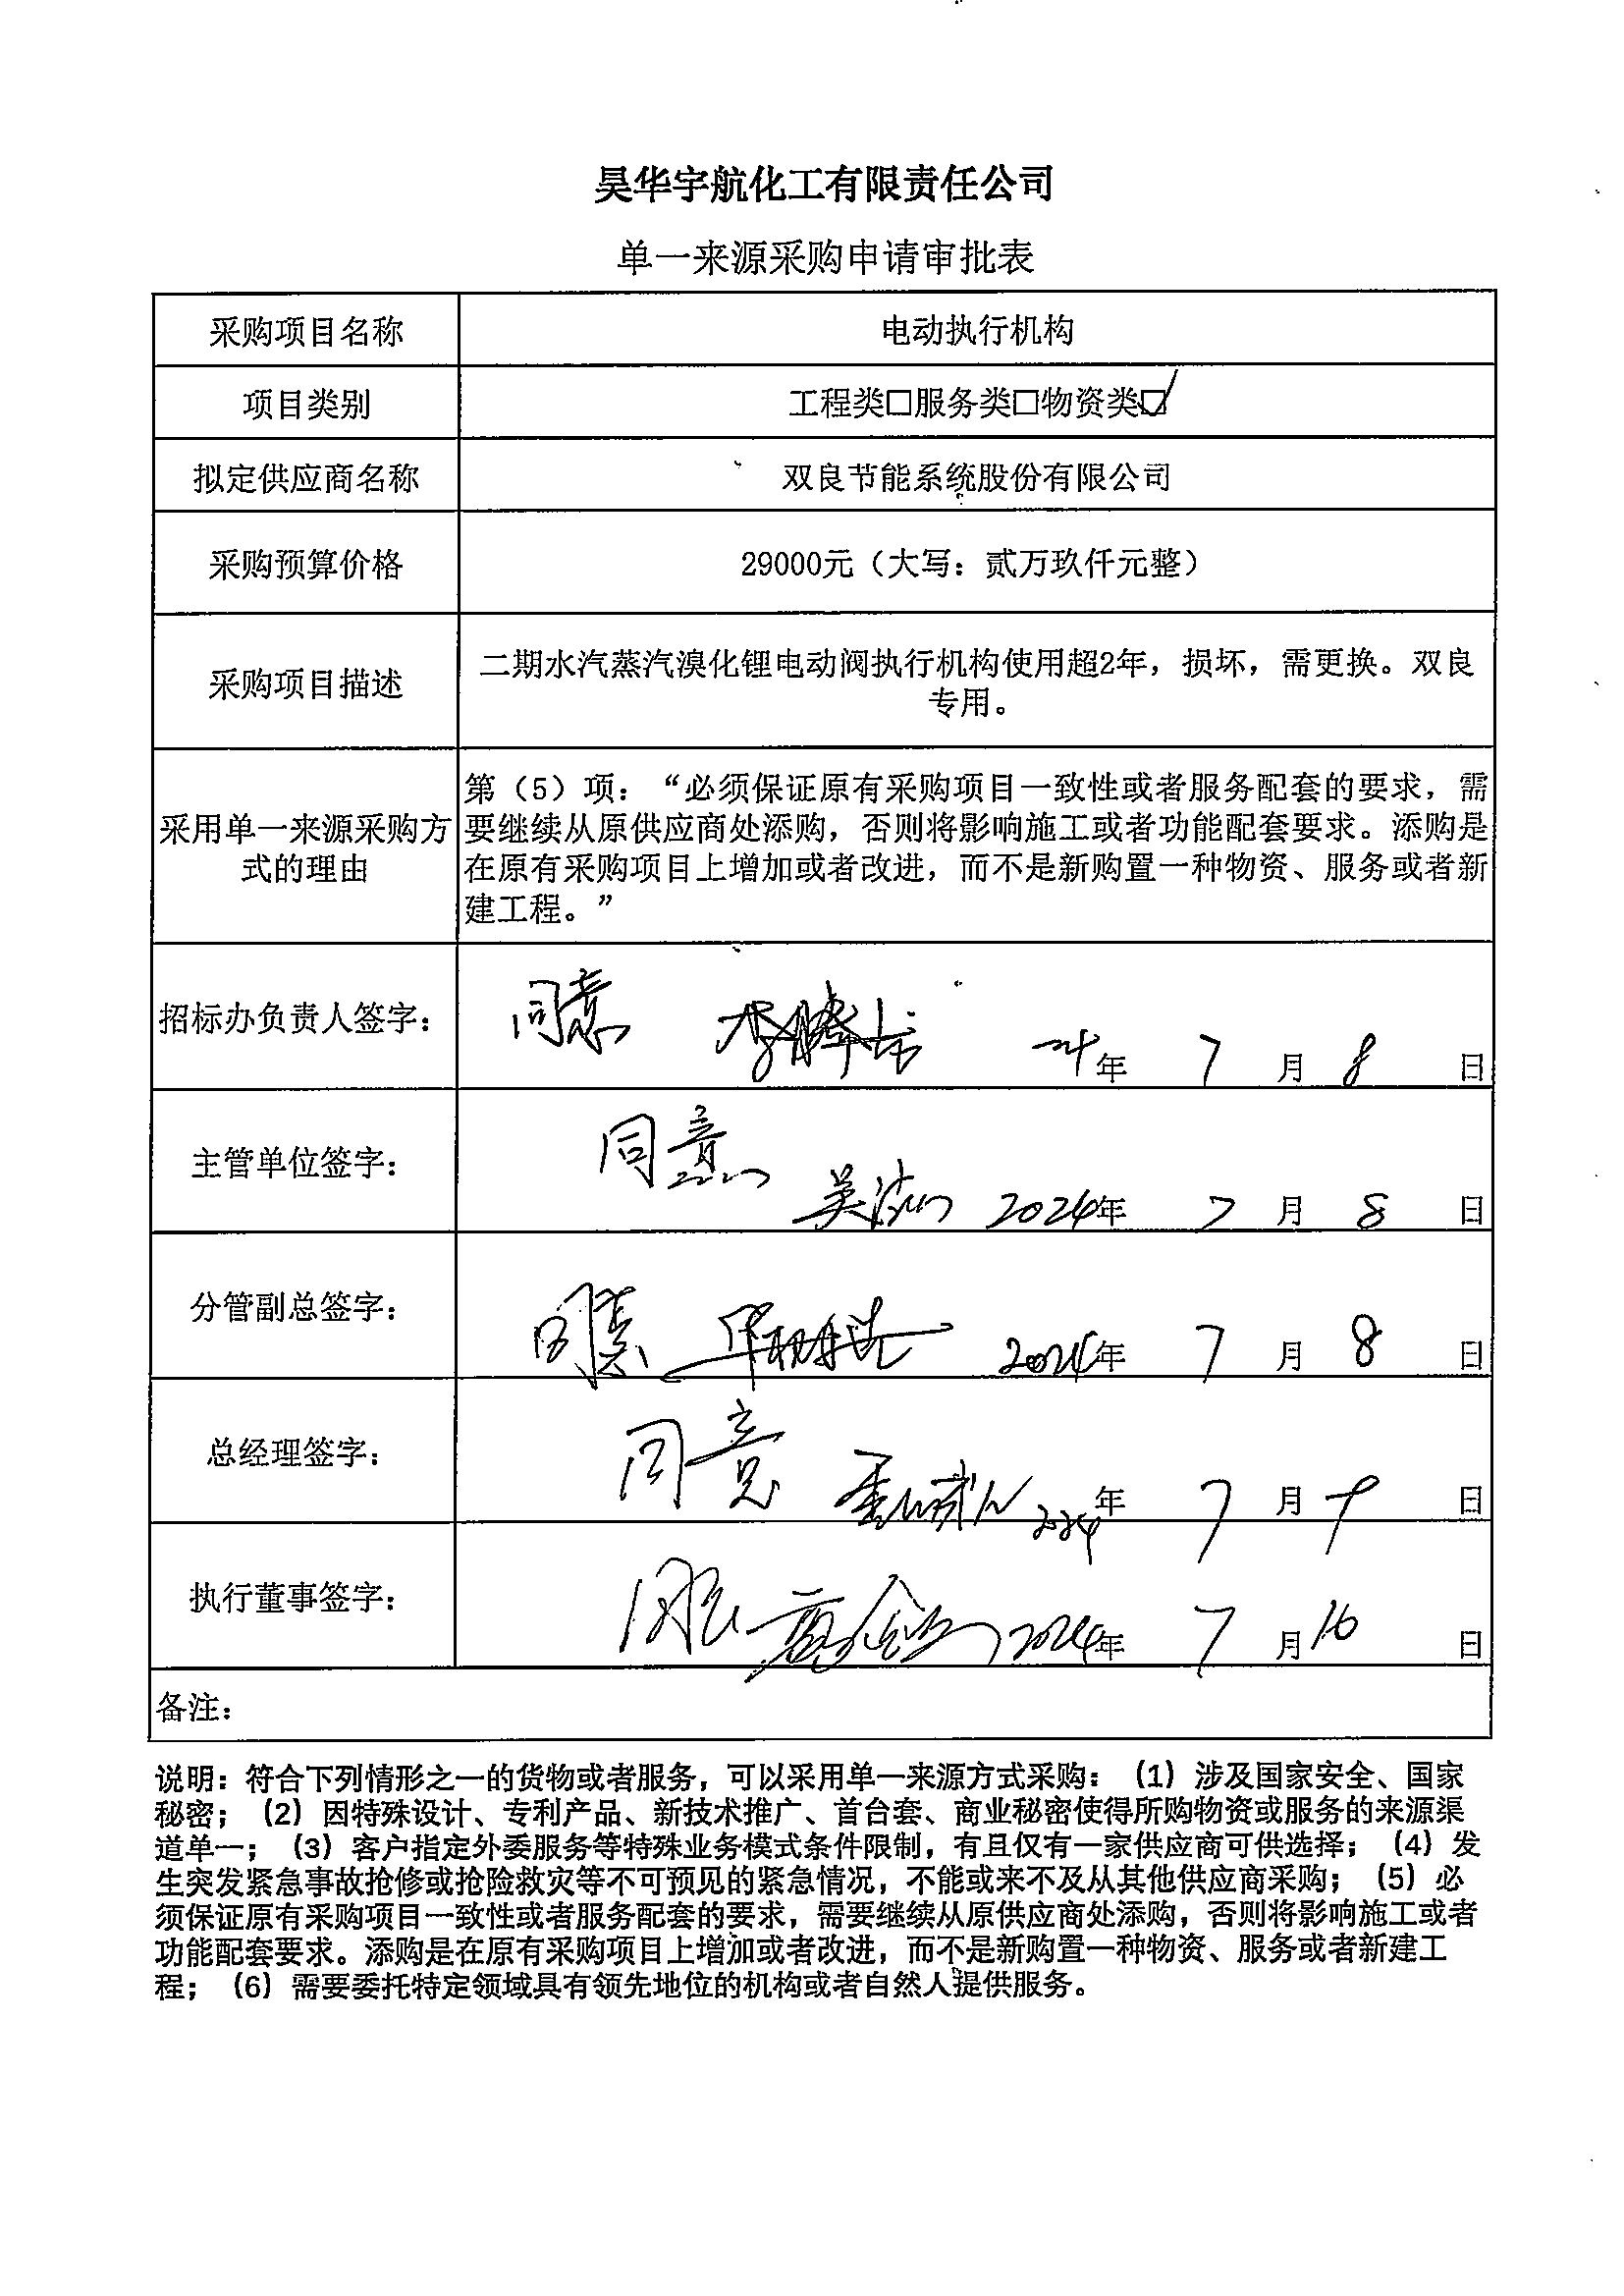 昊华宇航化工有限责任公司
单一来源采购申请审批表
采购项目名称
电动执行机构
项目类别
工程类□服务类□物资类☑
拟定供应商名称
双良节能系统股份有限公司
采购预算价格
29000元（大写：贰万玖仟元整）
采购项目描述
二期水汽蒸汽溴化锂电动阀执行机构使用超2年，损坏，需更换。双良
专用。
采用单一来源采购方
式的理由
第（5）项：“必须保证原有采购项目一致性或者服务配套的要求，需
要继续从原供应商处添购，否则将影响施工或者功能配套要求。添购是
在原有采购项目上增加或者改进，而不是新购置一种物资、服务或者新
建工程。”
招标办负责人签字：
同意 年 7 月 8 日
主管单位签字：
同意 2024年 7 月 8 日
分管副总签字：
同意 2024年 7 月 8 日
总经理签字：
同意 2024年 7 月 日
执行董事签字：
同意 2024年 7 月 10 日
备注：
说明：符合下列情形之一的货物或者服务，可以采用单一来源方式采购：（1）涉及国家安全、国家
秘密；（2）因特殊设计、专利产品、新技术推广、首台套、商业秘密使得所购物资或服务的来源渠
道单一；（3）客户指定外委服务等特殊业务模式条件限制，有且仅有一家供应商可供选择；（4）发
生突发紧急事故抢修或抢险救灾等不可预见的紧急情况，不能或来不及从其他供应商采购；（5）必
须保证原有采购项目一致性或者服务配套的要求，需要继续从原供应商处添购，否则将影响施工或者
功能配套要求。添购是在原有采购项目上增加或者改进，而不是新购置一种物资、服务或者新建工
程；（6）需要委托特定领域具有领先地位的机构或者自然人提供服务。